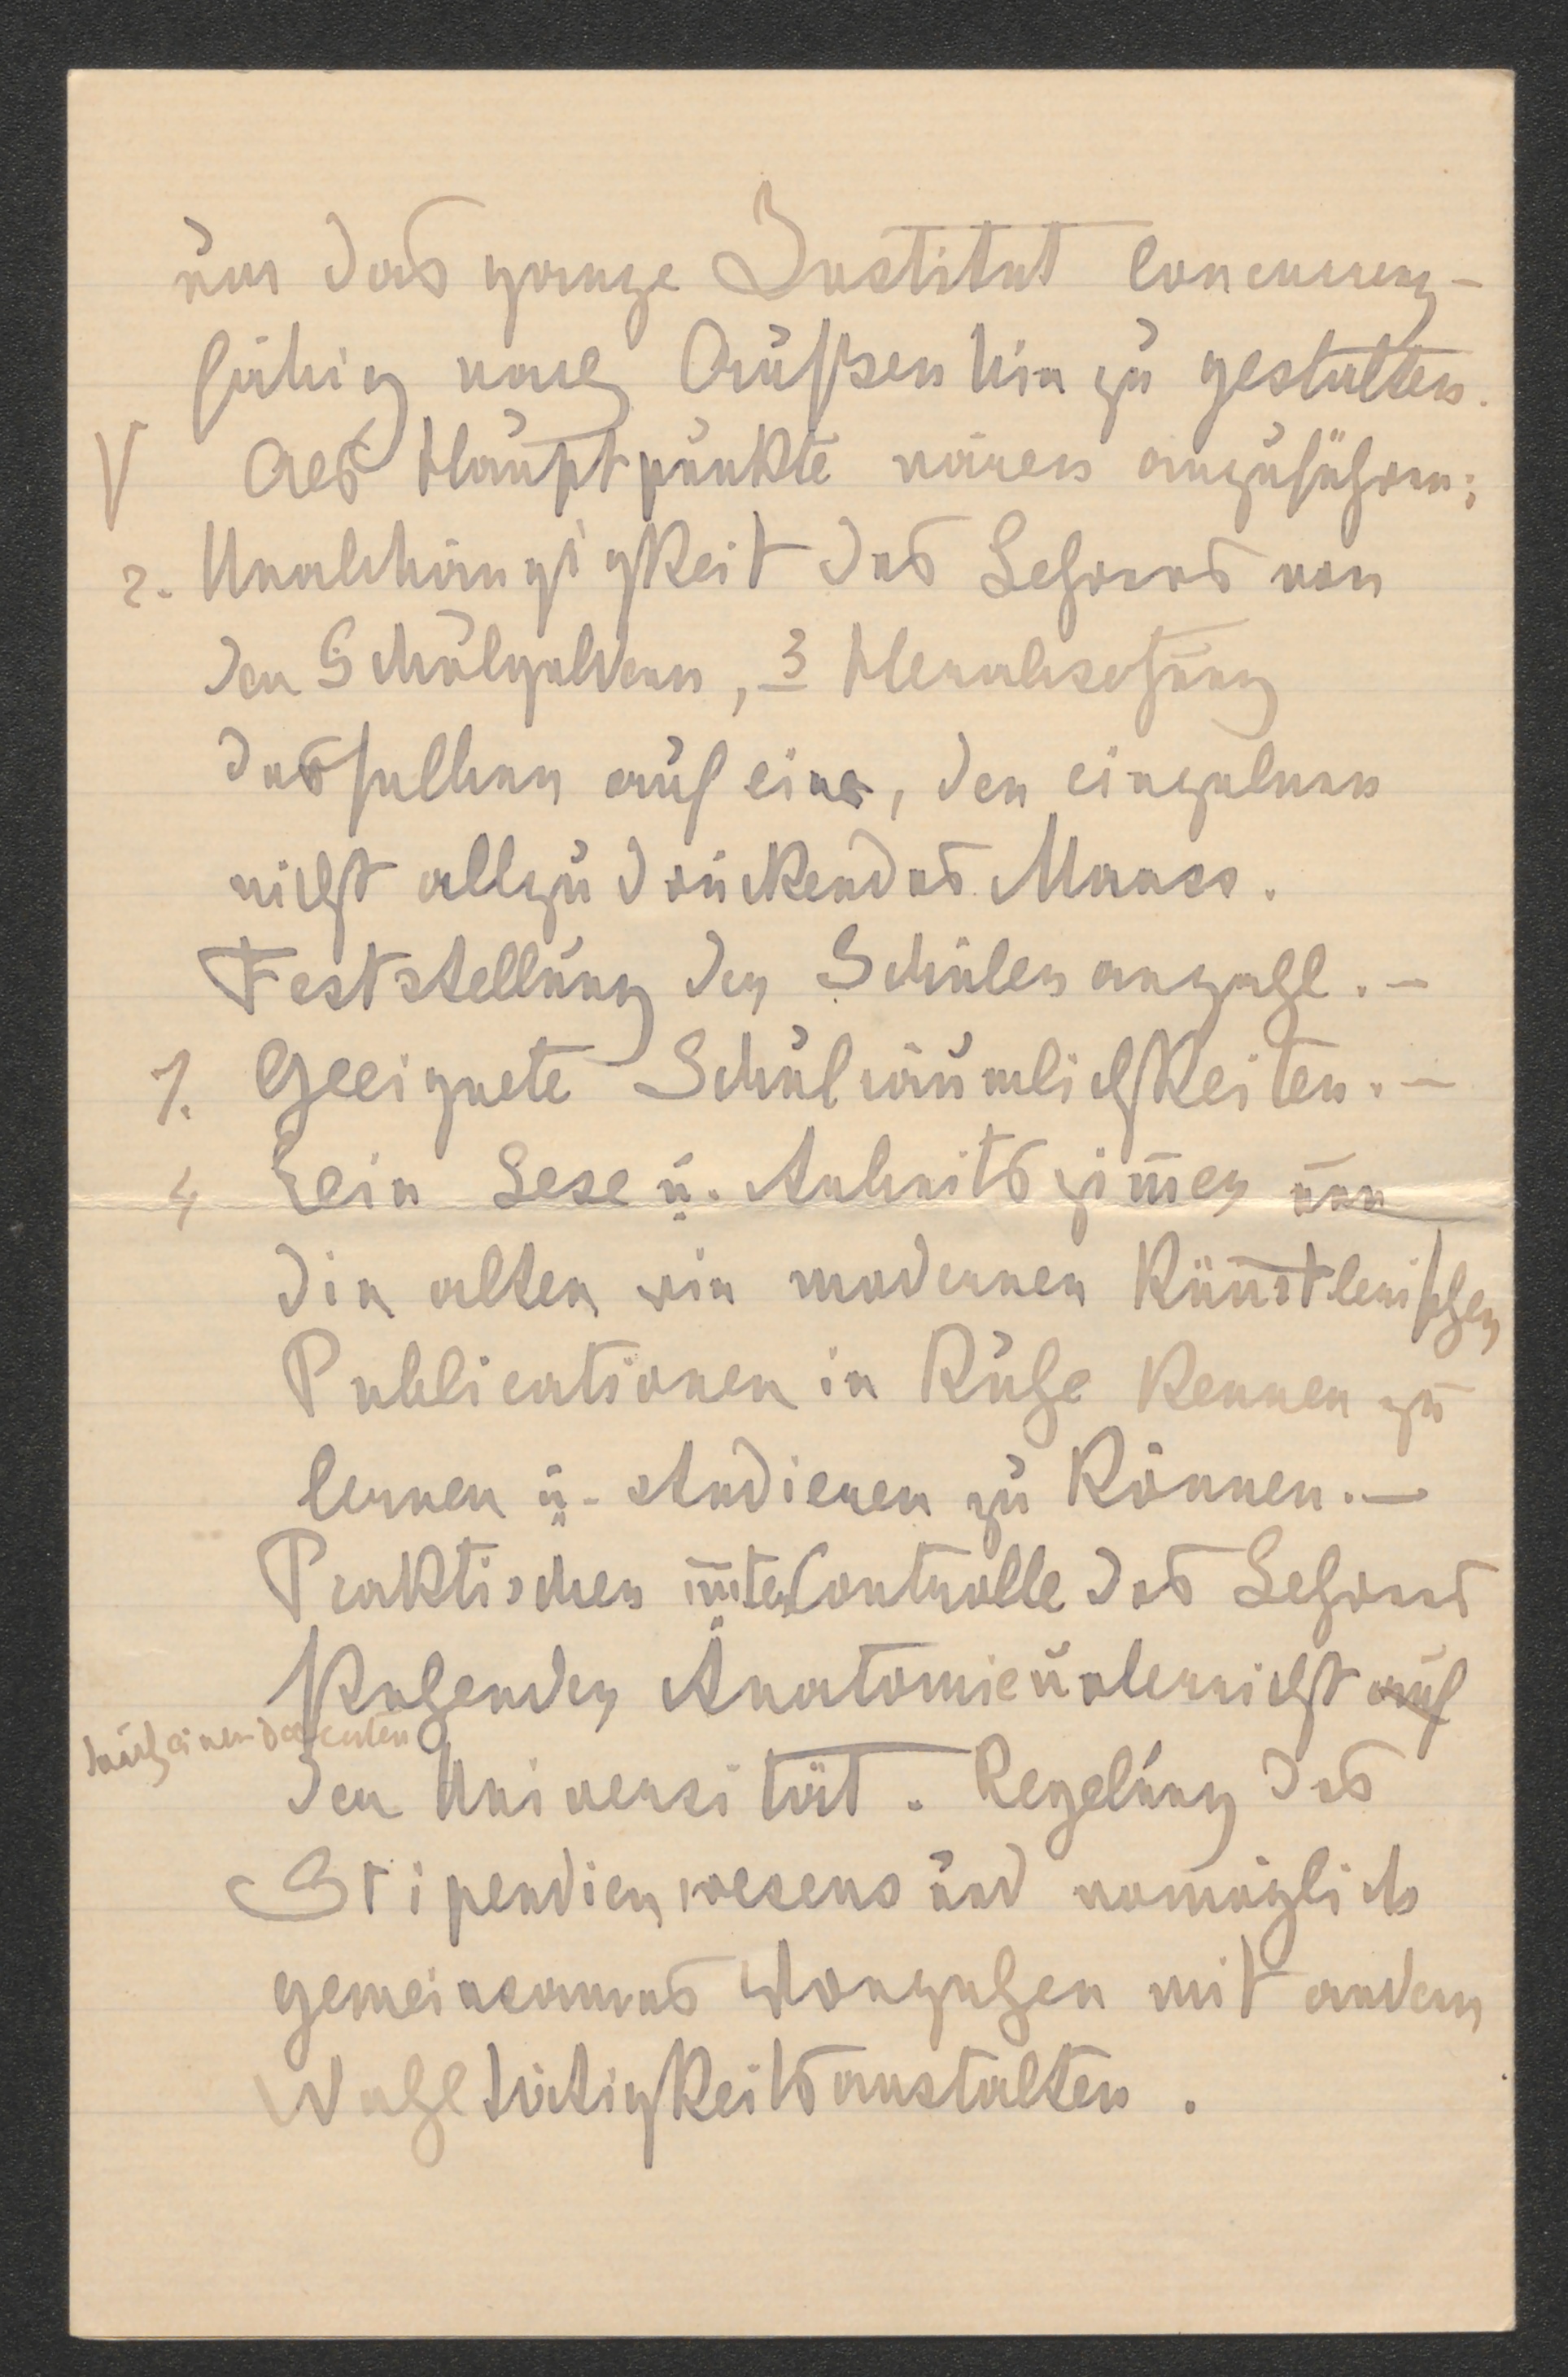 um das ganze Institut concurrenz-
fähig nach Außsen hin zu gestalten.
V Als Hauptpunkte wären anzuführen:
2. Unabhängigkeit des Lehrers von
den Schulgeldern, 3 Herabsetzung
desselben auf eine, den einzelnen
nicht allzu drückendes Maass.
Feststellung der Schüleranzahl. —
1. Geeignete Schulräumlichkeiten. —
4 Ein Lese u. Arbeitszim̅er um
die alten wie modernen Künstlerischen
Publicationen in Ruhe Kennen zu
lernen u. studieren zu Können. —
Praktischen unter Controlle des Lehrers
stehenden Anatomieunterricht auf
durch einen Docenten
der Universität. Regelung des
Stipendienwesens und womöglich
gemeinsames Vorgehen mit andern
Wohltätigkeitsanstalten.